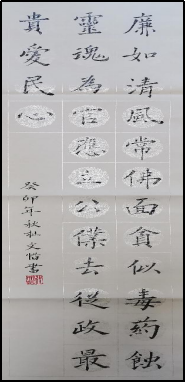 廉如清風常佛面貪似毒藥蝕
靈魂為官應立公僕去從政最
貴愛民心
癸卯年秋杜文怡書